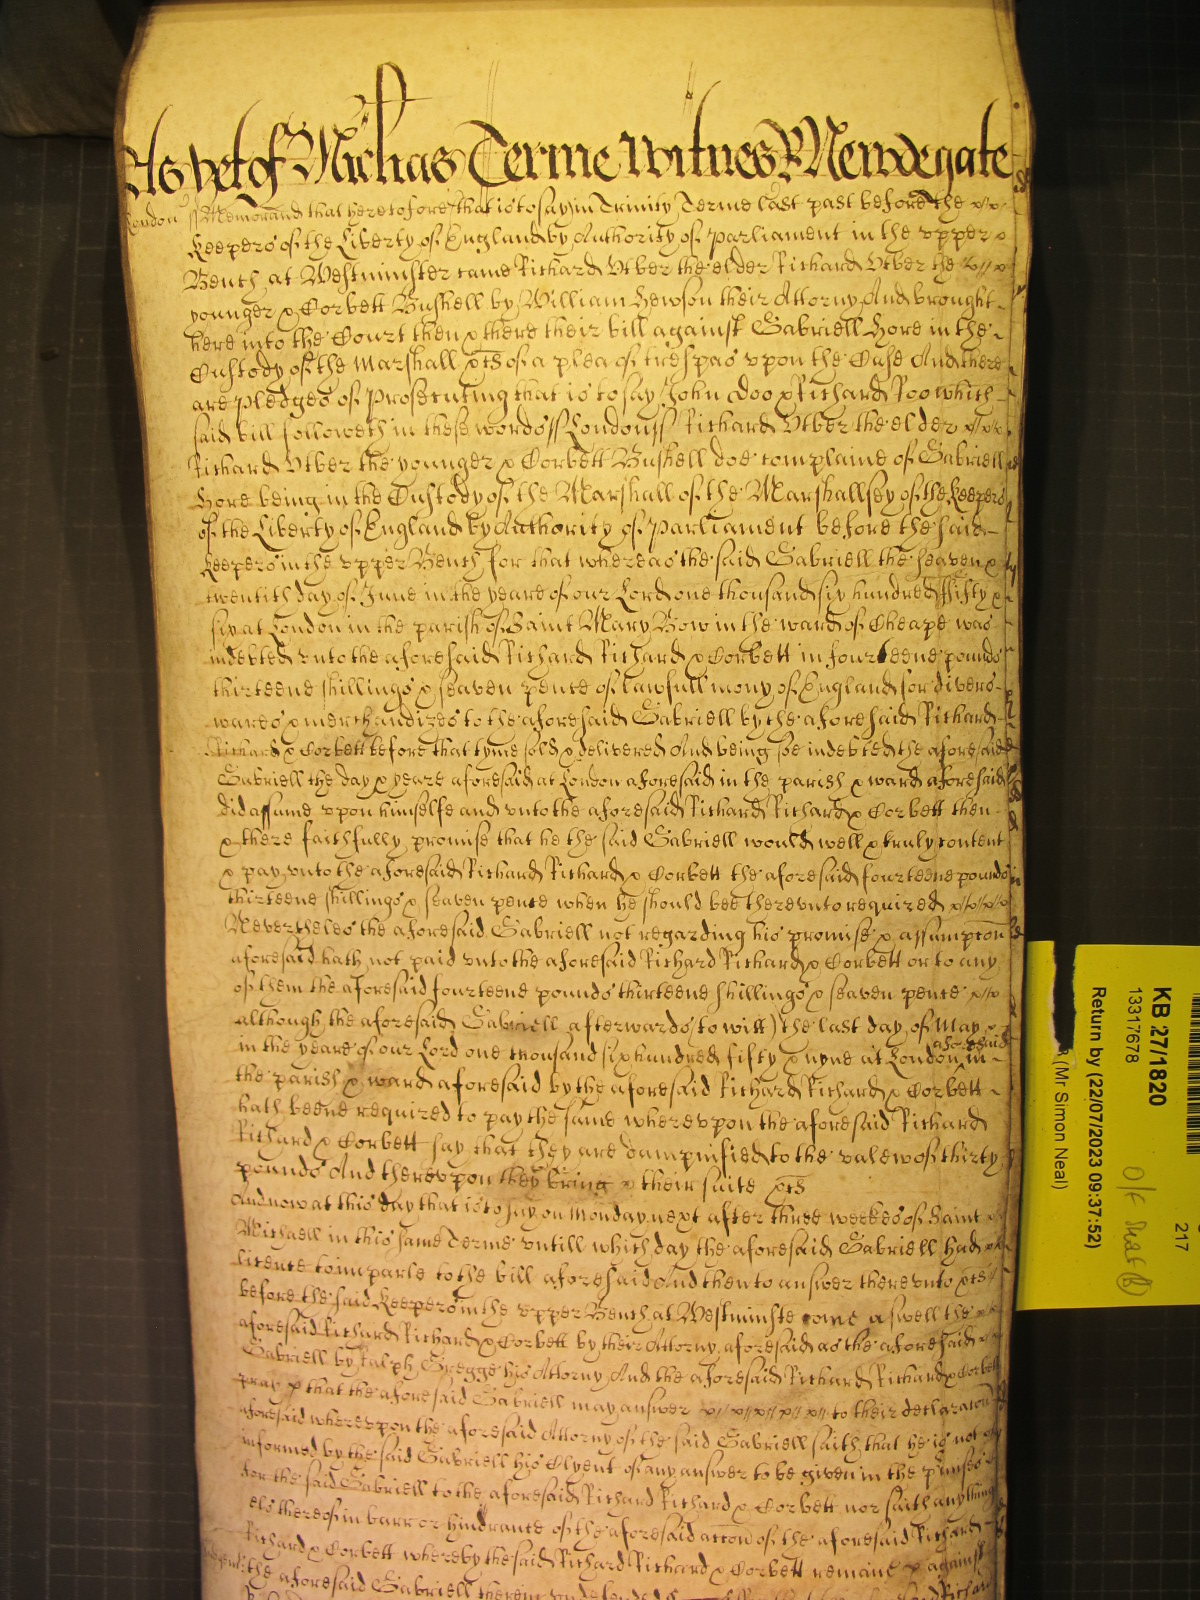 As yet of Michas Terme Witnes Newdegate
London ss Memorand that heretofore (that is to say) in Trinity Terme last past before the
Keepers of the Liberty of England by Authority of Parliament in the vpper
Bench at Westminster came Richard Vtber the elder Richard Vtber the
younger & Corbett Bushell by William Hewson their Attorny And brought
here into the Court then & there their bill against Gabriell Hore in the
Custody of the Marshall &cts of a plea of trespas vpon the Case And there
are pledges of Prosecuting that is to say John Doo & Richard Roo which
said bill followeth in these words ss London ss Richard Vtber the elder
Richard Vtber the younger & Corbett Bushell doe complaine of Gabriell
Hore being in the Custody of the Marshall of the Marshallsey of the Keepers
of the Liberty of England by Authority of Parliament before the said
Keepers in the vpper Bench for that whereas the said Gabriell the seaven &
twentith day of June in the yeare of our Lord one thousand six hundred fifty &
six at London in the parish of Saint Mary Bow in the ward of Cheape was
indebted vnto the aforesaid Richard Richard & Corbett in fourteene pounds
thirteene shillings & seaven pence of lawfull mony of England for divers
wares & merchandizes to the aforesaid Gabriell by the aforesaid Richard
Richard & Corbett before that tyme sold & delivered And being soe indebted the aforesaid
Gabriell the day & yeare aforesaid at London aforesaid in the parish & ward aforesaid
did assume vpon himselfe and vnto the aforesaid Richard Richard & Corbett then
& there faithfully promise that he the said Gabriell would well & truly content
& pay vnto the aforesaid Richard Richard & Corbett the aforesaid fourteene pounds
thirteene shillings & seaven pence when he should bee therevnto required
Neverthelesse the aforesaid Gabriell not regarding his promise & assumpcon
aforesaid hath not paid vnto the aforesaid Richard Richard & Corbett or to any
of them the aforesaid fourteene pounds thirteene shillings & seaven pence
although the aforesaid Gabriell afterwards (to witt) the last day of May
in the yeare of our Lord one thousand six hundred fifty & nyne at London aforesaid in
the parish & ward aforesaid by the aforesaid Richard Richard & Corbett
hath beene required to pay the same wherevpon the aforesaid Richard
Richard & Corbett say that they are dampnified to the valew of thirty
pounds And therevpon they bring their suite &cts
And now at this day that is to say on Monday next after three weekes of Saint
Michaell in this same Terme vntill which day the aforesaid Gabriell had
licence to imparle to the bill aforesaid And then to answer therevnto &cts
before the said Keepers in the vpper Bench at Westminste come aswell the
aforesaid Richard Richard & Corbett by their Attorny aforesaid as the aforesaid
Gabriell by Ralph Gregge his Attorny And the aforesaid Richard Richard & Corbett
pray that the aforesaid Gabriell may answer to their declaracon
aforesaid wherevpon the aforesaid Attorny of the said Gabriell saith that he is not
informed by the said Gabriell his Clyent of any answer to be given in the p'misses
for the said Gabriell to the aforesaid Richard Richard & Corbett nor saith anything
els thereof in barr or hindrance of the aforesaid accon of the aforesaid Richard
Richard & Corbett whereby the said Richard Richard & Corbett remaine against
the aforesaid Gabriell therein vndefended
KB 27/1820
13317678
Return by (22/07/2023 09:37:52)
(Mr Simon Neal)
217